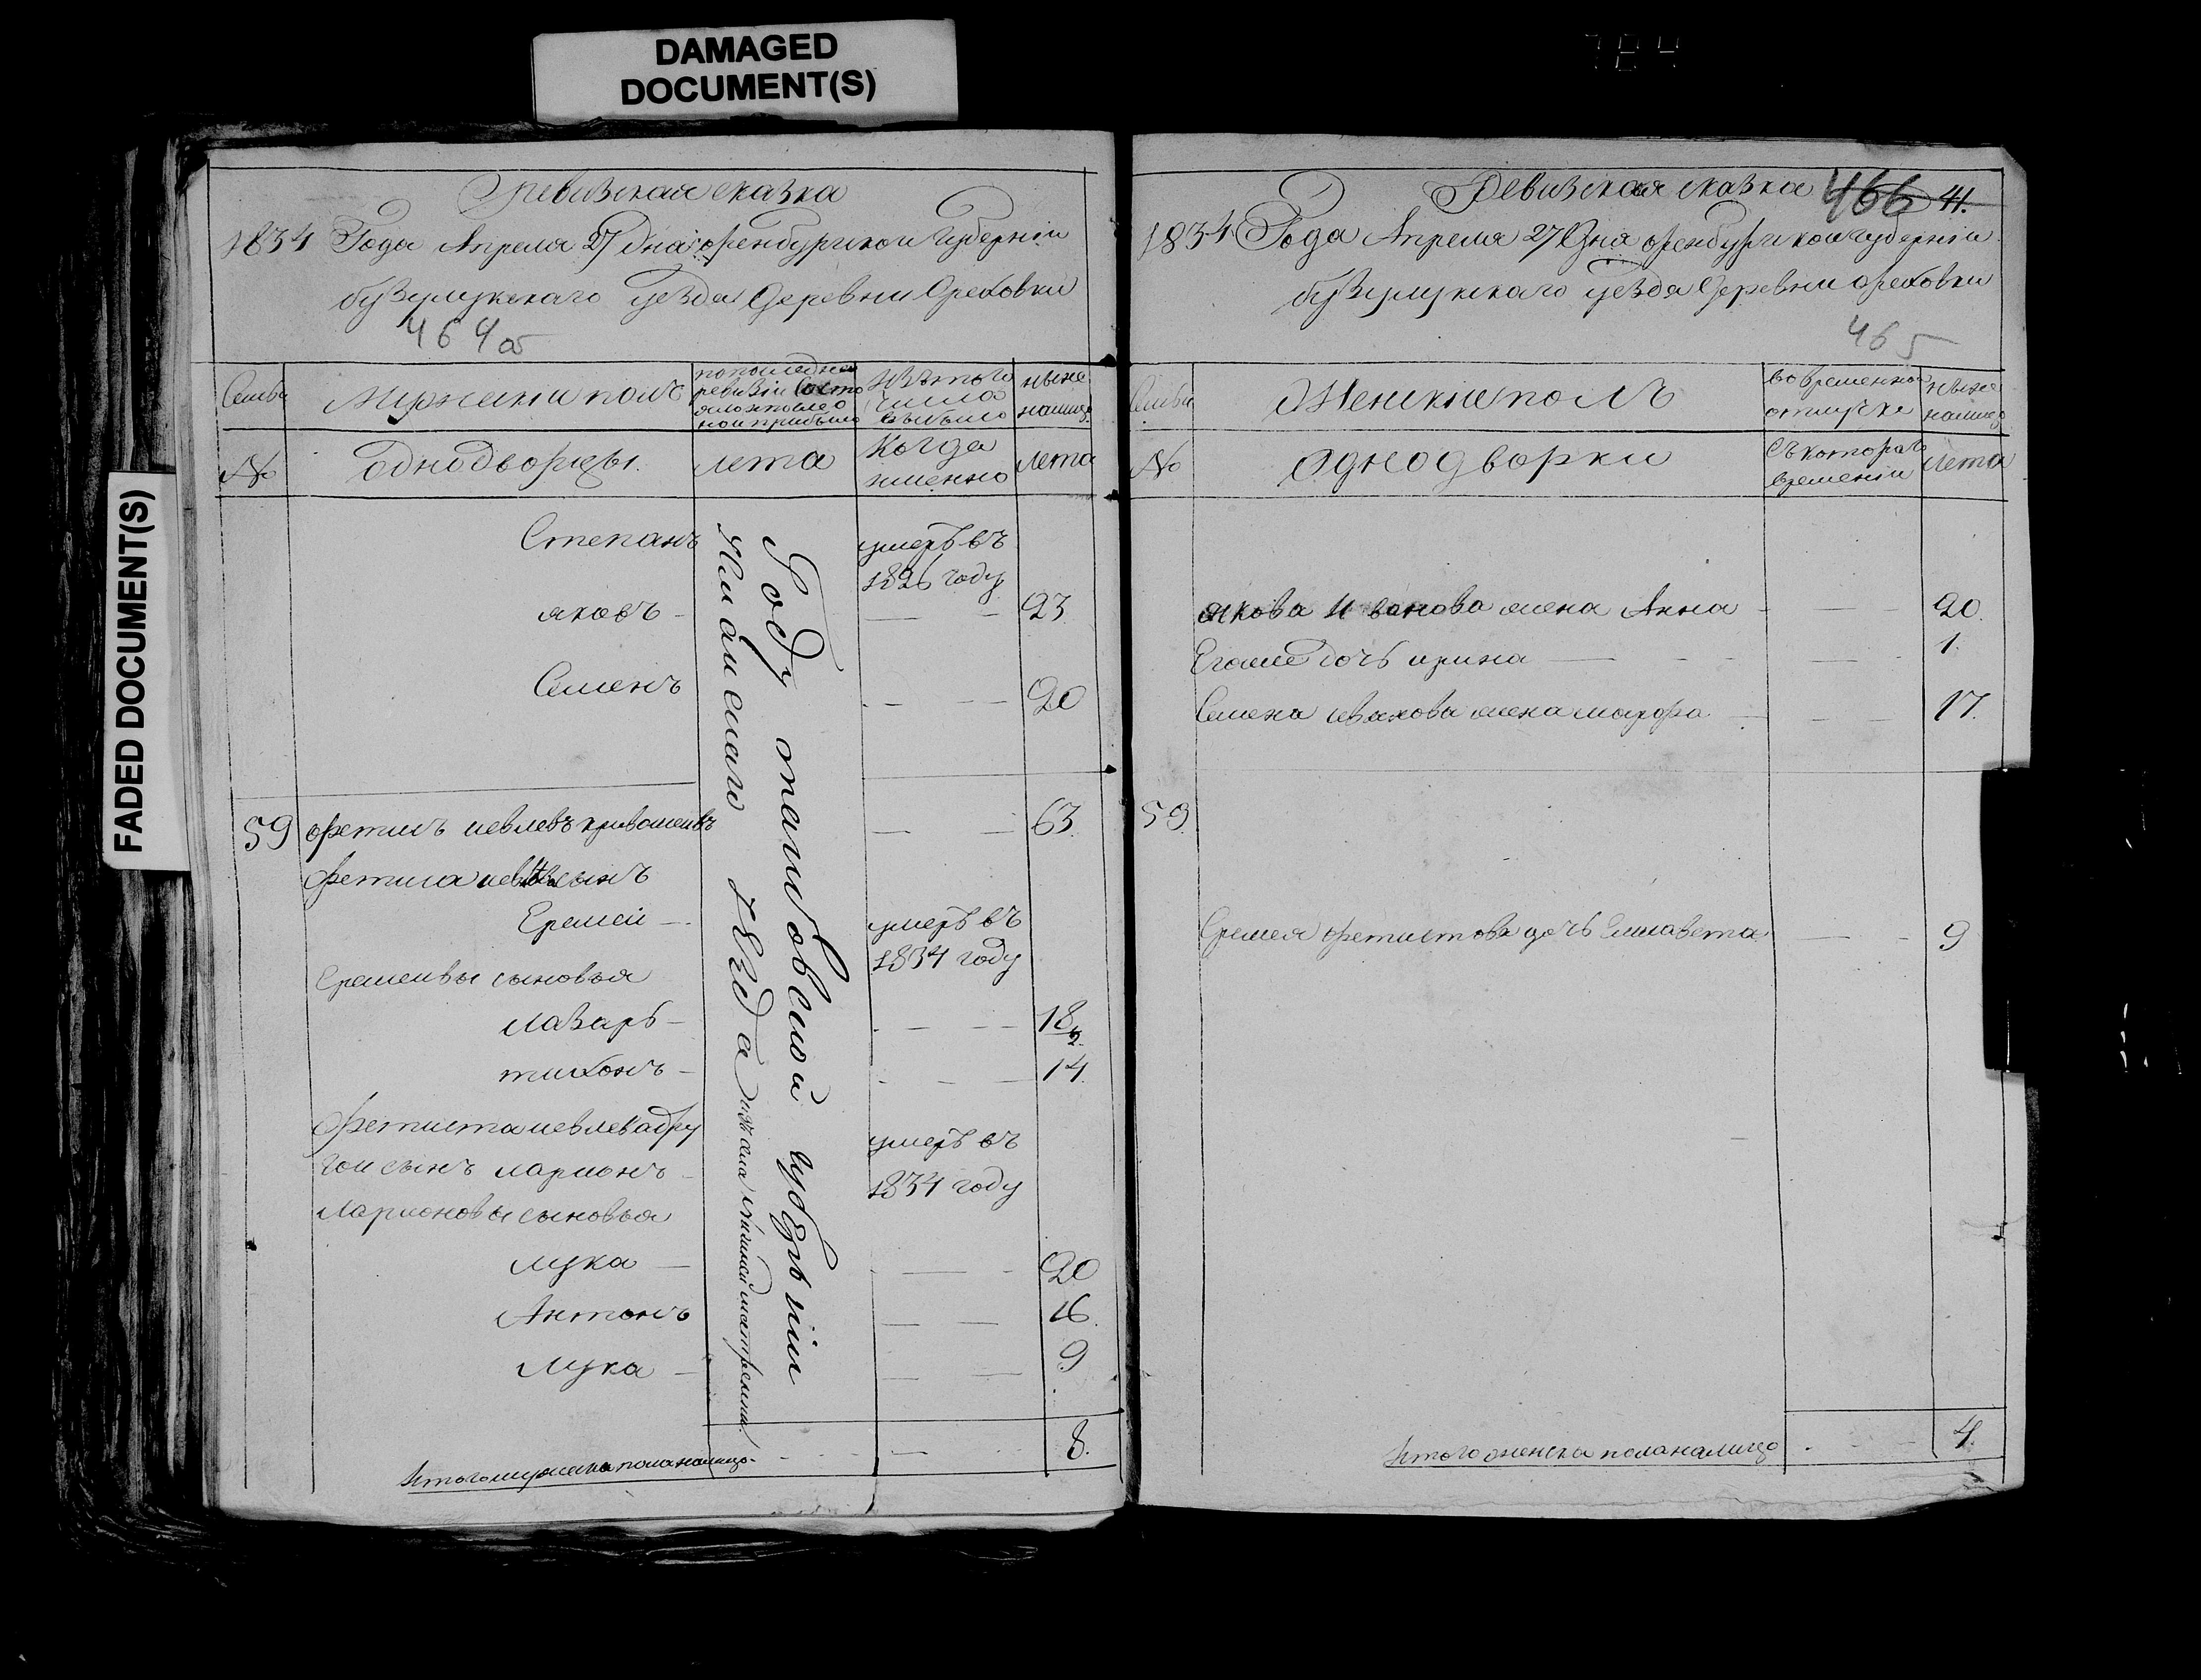 DAMAGED
DOCUMENT(S)
FADED DOCUMENT(S)
Ревизская сказка
1834 Года Апреля 27 дня оренбургскои Губернiи
бузулукскаго уезда Деревни Ореховки
464 об
Семьи
Мужески полъ
по последней
ревизiи состо
яло и после о
ной прибыло
Изъ того
числа
выбыло
ныне
налицо
№
однодворцы.
лета
Когда
именно
лета
Степанъ
умерь въ
1826 году
яковъ - 23
Семенъ 20
59 фетисъ иевлевъ кривошеивъ 63
фетиса иевлева сынъ
Еремеи
умерь въ
1834 году
Еремеивы сыновья
Лазарь 18
тихонъ 14
фетиста иевлева дру
гои сынъ ларионъ
умерь въ
1834 году
Ларионовы сыновья
лука 20
Антонъ 16
Лука 9
Году тамбовской губернiи
уезда изъ села
Итого мужеска пола налицо 8.
Ревизская сказка 466 41.
1834 Года Апреля 27 Дня оренбургскои губернiи
бузулукскаго уезда Деревни ореховки
465
Семьи
Женские полъ
во временной
отлучке
ныне
налицо
№
Однодворки
Съ котораго
временiи
лета
якова Иванова жена Анна 20.
Егоже дочь ирина 1.
Семена иванова жена марфа 17.
59
Еремея фетистова дочь Елисавета 9
Итого женска пола налицо 4.